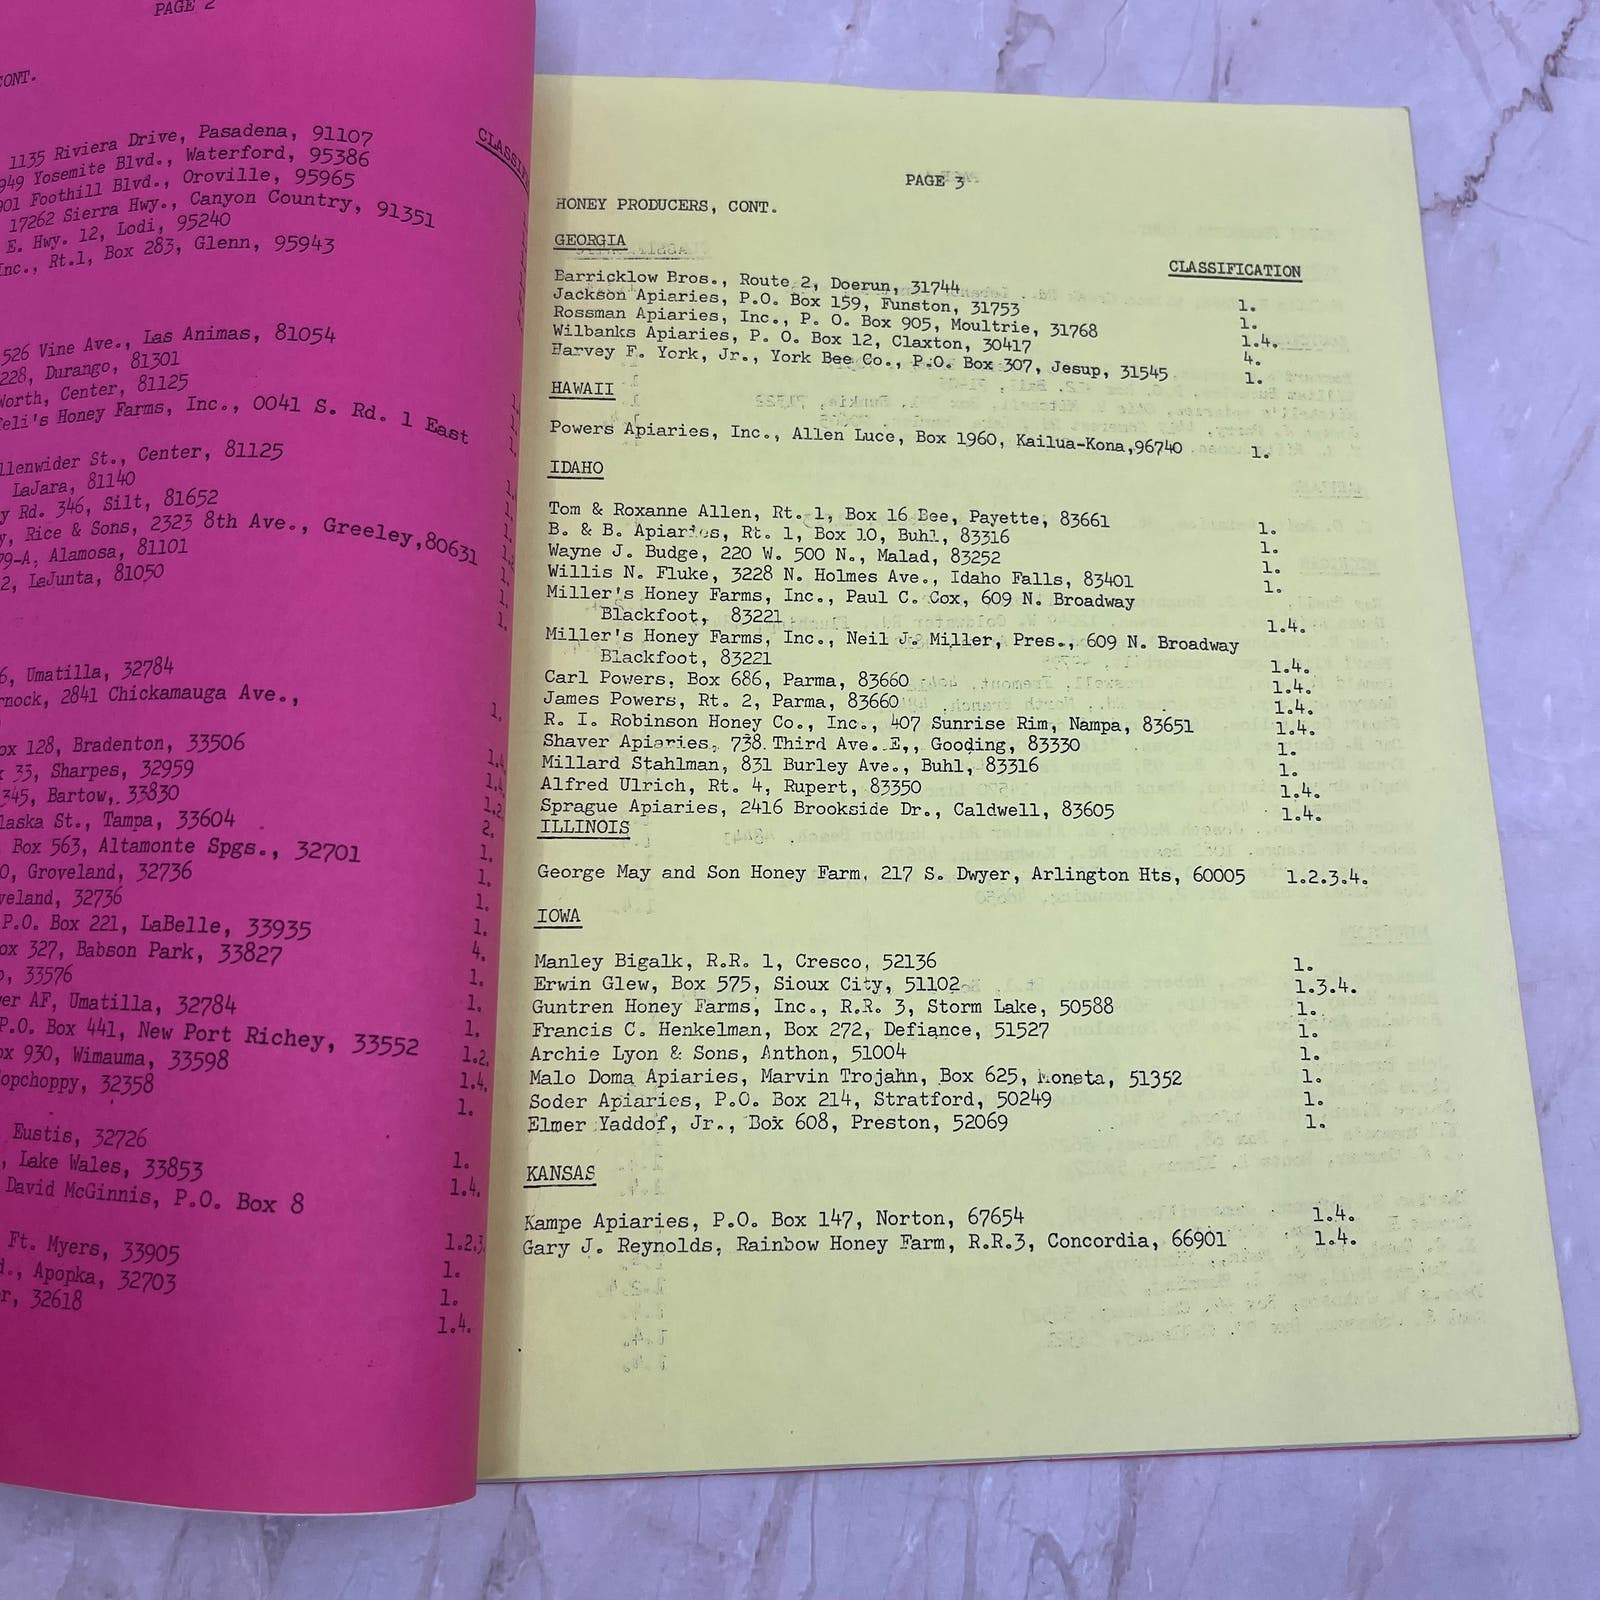 PAGE 2
CONT.
CLASSIF
1135 Riviera Drive, Pasadena, 91107
949 Yosemite Blvd., Waterford, 95386
901 Foothill Blvd., Oroville, 95965
17262 Sierra Hwy., Canyon Country, 91351
E. Hwy. 12, Lodi, 95240
Inc., Rt.1, Box 283, Glenn, 95943
526 Vine Ave., Las Animas, 81054
228, Durango, 81301
Worth, Center, 81125
eli's Honey Farms, Inc., 0041 S. Rd. 1 East
llenwider St., Center, 81125
LaJara, 81140
y Rd. 346, Silt, 81652
y, Rice & Sons, 2323 8th Ave., Greeley,80631
79-A, Alamosa, 81101
2, LaJunta, 81050
6, Umatilla, 32784
rnock, 2841 Chickamauga Ave., 1.
ox 128, Bradenton, 33506 1.4
x 33, Sharpes, 32959 1.4.
345, Bartow, 33830 1.2.
laska St., Tampa, 33604 2.
Box 563, Altamonte Spgs., 32701 1.
0, Groveland, 32736 1.
veland, 32736 1.
P.O. Box 221, LaBelle, 33935 1.
ox 327, Babson Park, 33827 4.
o, 33576 1.
er AF, Umatilla, 32784 1.
P.O. Box 441, New Port Richey, 33552 1.
ox 930, Wimauma, 33598 1.2.
opchoppy, 32358 1.4.
1.
Eustis, 32726 1.
, Lake Wales, 33853 1.4.
David McGinnis, P.O. Box 8
Ft. Myers, 33905 1.2.3.
d., Apopka, 32703 1.
r, 32618 1.
1.4.
PAGE 3
HONEY PRODUCERS, CONT.
GEORGIA CLASSIFICATION
Barricklow Bros., Route 2, Doerun, 31744 1.
Jackson Apiaries, P.O. Box 159, Funston, 31753 1.
Rossman Apiaries, Inc., P. O. Box 905, Moultrie, 31768 1.4.
Wilbanks Apiaries, P. O. Box 12, Claxton, 30417 4.
Harvey F. York, Jr., York Bee Co., P.O. Box 307, Jesup, 31545 1.
HAWAII
Powers Apiaries, Inc., Allen Luce, Box 1960, Kailua-Kona,96740 1.
IDAHO
Tom & Roxanne Allen, Rt. 1, Box 16 Bee, Payette, 83661 1.
B. & B. Apiaries, Rt. 1, Box 10, Buhl, 83316 1.
Wayne J. Budge, 220 W. 500 N., Malad, 83252 1.
Willis N. Fluke, 3228 N. Holmes Ave., Idaho Falls, 83401 1.
Miller's Honey Farms, Inc., Paul C. Cox, 609 N. Broadway
Blackfoot, 83221 1.4.
Miller's Honey Farms, Inc., Neil J. Miller, Pres., 609 N. Broadway
Blackfoot, 83221 1.4.
Carl Powers, Box 686, Parma, 83660 1.4.
James Powers, Rt. 2, Parma, 83660 1.4.
R. I. Robinson Honey Co., Inc., 407 Sunrise Rim, Nampa, 83651 1.4.
Shaver Apiaries, 738 Third Ave. E., Gooding, 83330 1.
Millard Stahlman, 831 Burley Ave., Buhl, 83316 1.
Alfred Ulrich, Rt. 4, Rupert, 83350 1.4.
Sprague Apiaries, 2416 Brookside Dr., Caldwell, 83605 1.4.
ILLINOIS
George May and Son Honey Farm, 217 S. Dwyer, Arlington Hts, 60005 1.2.3.4.
IOWA
Manley Bigalk, R.R. 1, Cresco, 52136 1.
Erwin Glew, Box 575, Sioux City, 51102 1.3.4.
Guntren Honey Farms, Inc., R.R. 3, Storm Lake, 50588 1.
Francis C. Henkelman, Box 272, Defiance, 51527 1.
Archie Lyon & Sons, Anthon, 51004 1.
Malo Doma Apiaries, Marvin Trojahn, Box 625, Moneta, 51352 1.
Soder Apiaries, P.O. Box 214, Stratford, 50249 1.
Elmer Yaddof, Jr., Box 608, Preston, 52069 1.
KANSAS
Kampe Apiaries, P.O. Box 147, Norton, 67654 1.4.
Gary J. Reynolds, Rainbow Honey Farm, R.R.3, Concordia, 66901 1.4.